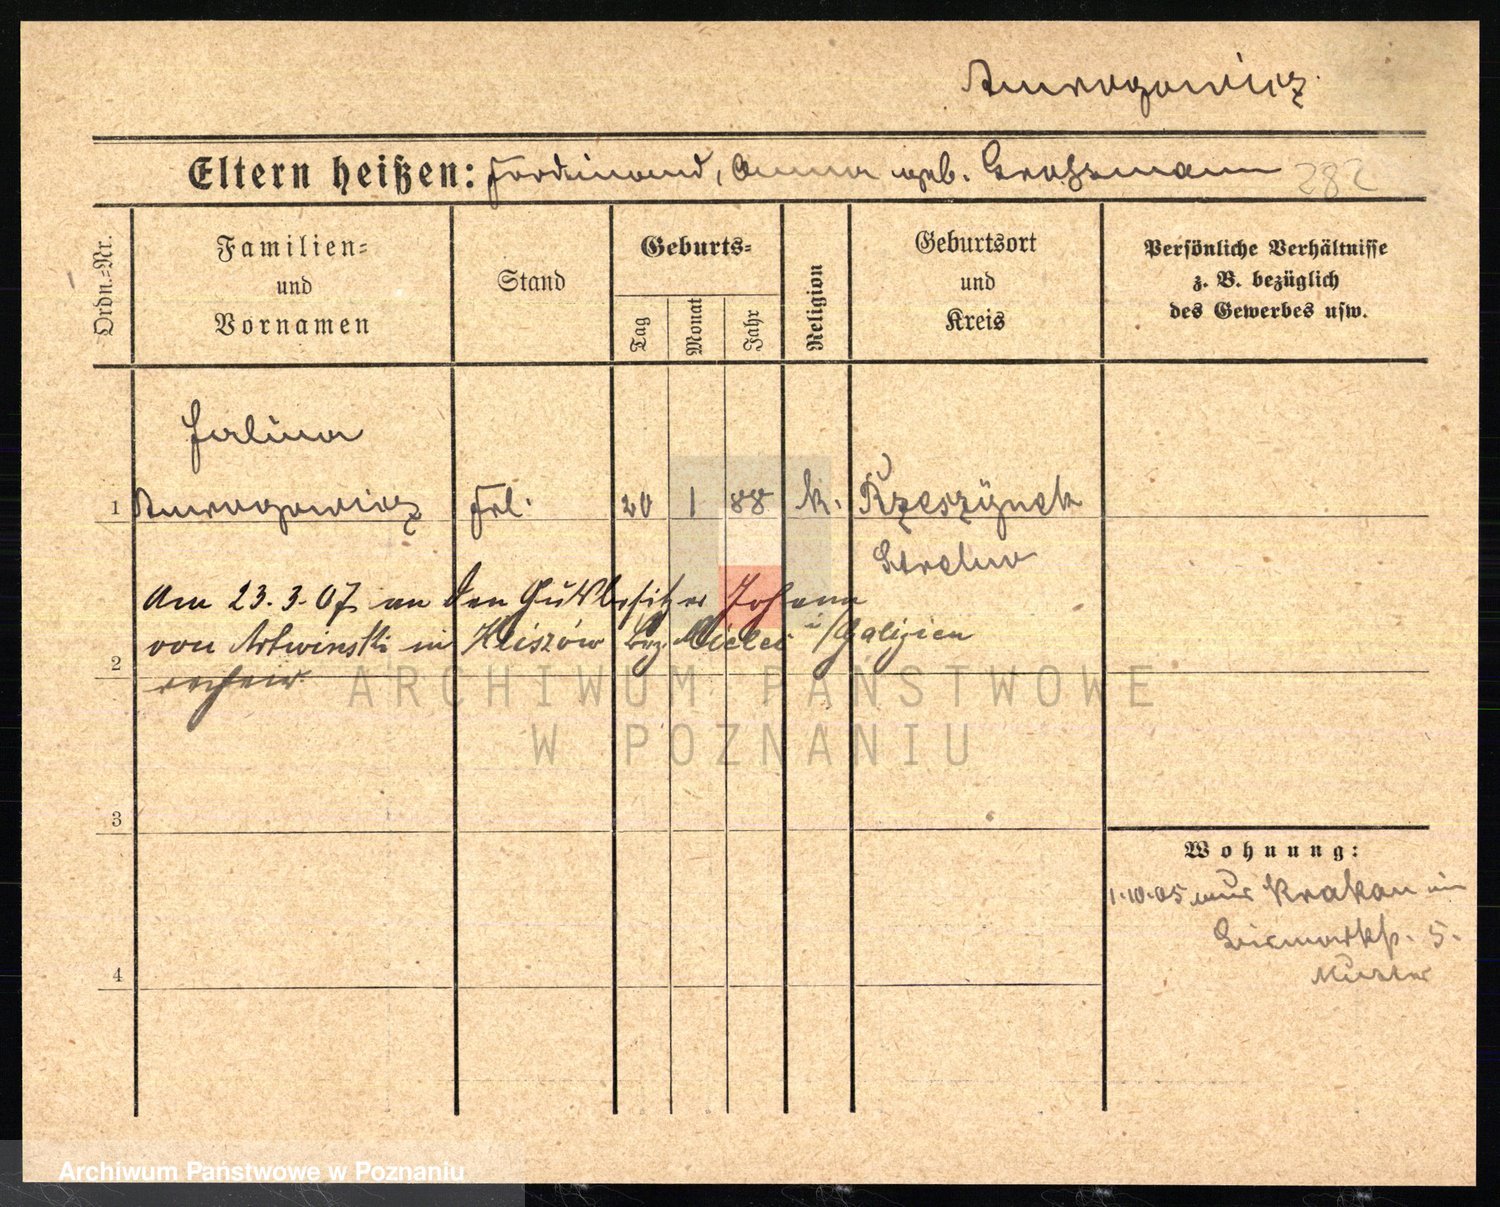 Amrogowicz.
Eltern heißen: Ferdinand, Anna geb. Grossmann 282
Ordn.-Nr.
Familien- und Vornamen
Stand
Geburts-
Tag
Monat
Jahr
Religion
Geburtsort und Kreis
Persönliche Verhältnisse z. B. bezüglich des Gewerbes usw.
Halina
1 Amrogowicz Frl. 20 1 88 k. Rzeszynek
Strelno
Am 23.3.07 an den Gutsbesitzer Johann
von Artwinski in Kliszów Bez. Mielec i/Galizien
2
3
Wohnung:
1.10.05 aus Krakau in
Bismarckstr. 5.
Mutter
4
ARCHIWUM PAŃSTWOWE
W POZNANIU
Archiwum Państwowe w Poznaniu